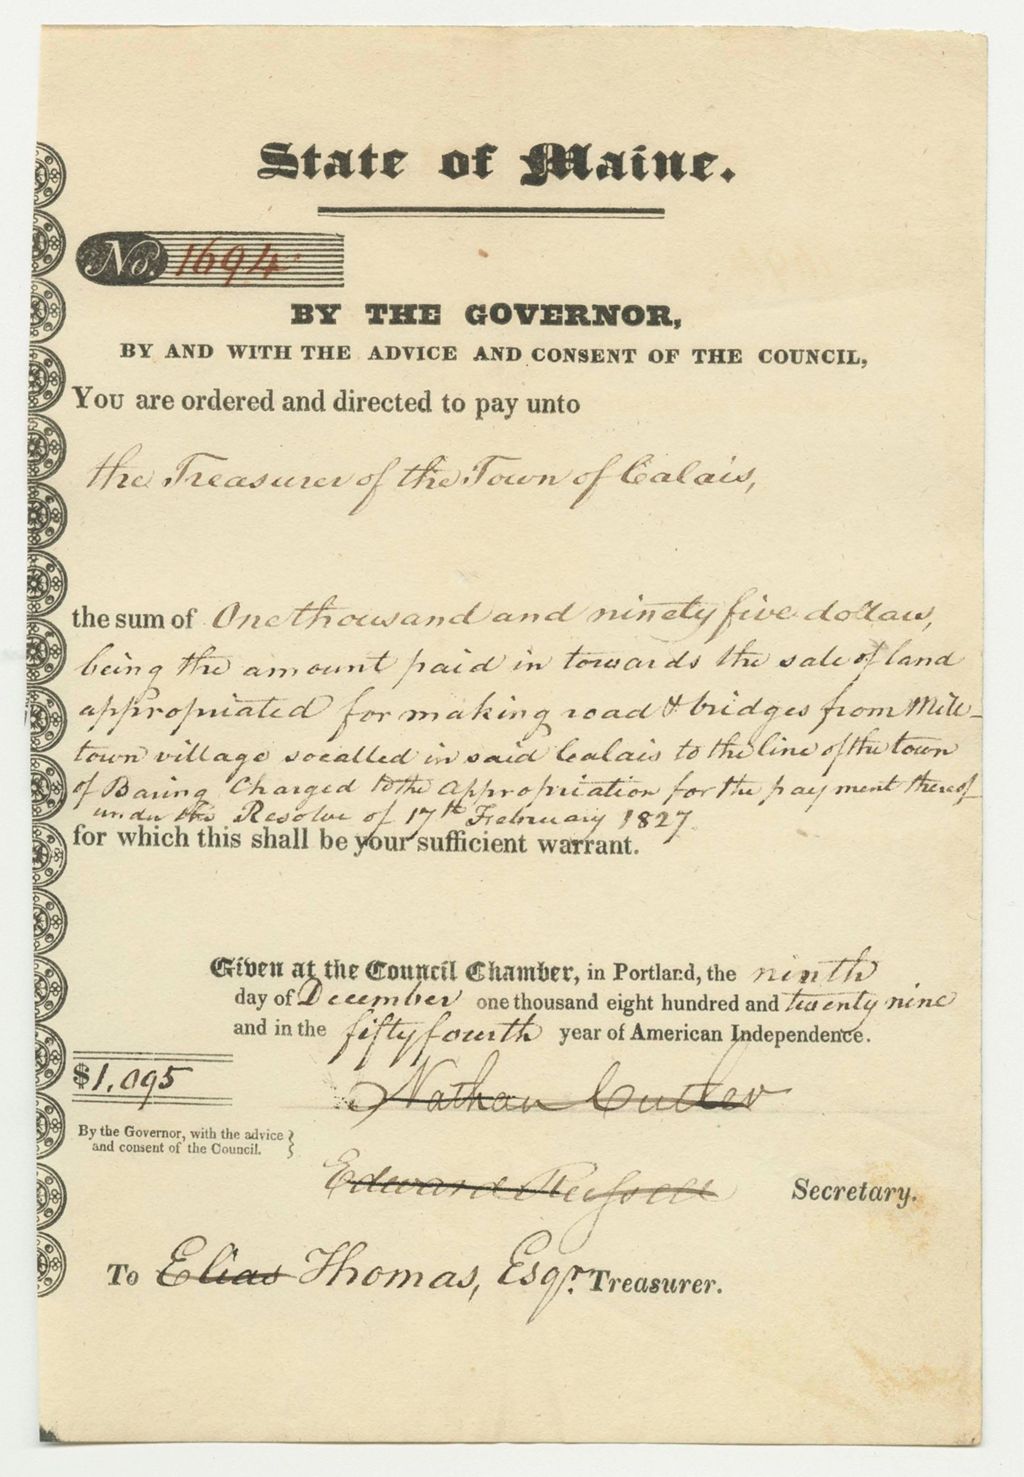 State of Maine.
No. 1694.
BY THE GOVERNOR,
BY AND WITH THE ADVICE AND CONSENT OF THE COUNCIL,
You are ordered and directed to pay unto
the Treasurer of the Town of Calais,
the sum of One thousand and ninety five dollars,
being the amount paid in towards the sale of land
appropriated for making road & bridges from Mill-
town village socalled in said Calais to the line of the town
of Baring Charged to the appropriation for the payment thereof
under the Resolve of 17th February 1827.
for which this shall be your sufficient warrant.
Given at the Council Chamber, in Portland, the ninth
day of December one thousand eight hundred and twenty nine
and in the fifty fourth year of American Independence.
$1,095
Nathan Cutler
By the Governor, with the advice }
and consent of the Council.
Edward Russell Secretary.
To Elias Thomas, Esqr. Treasurer.